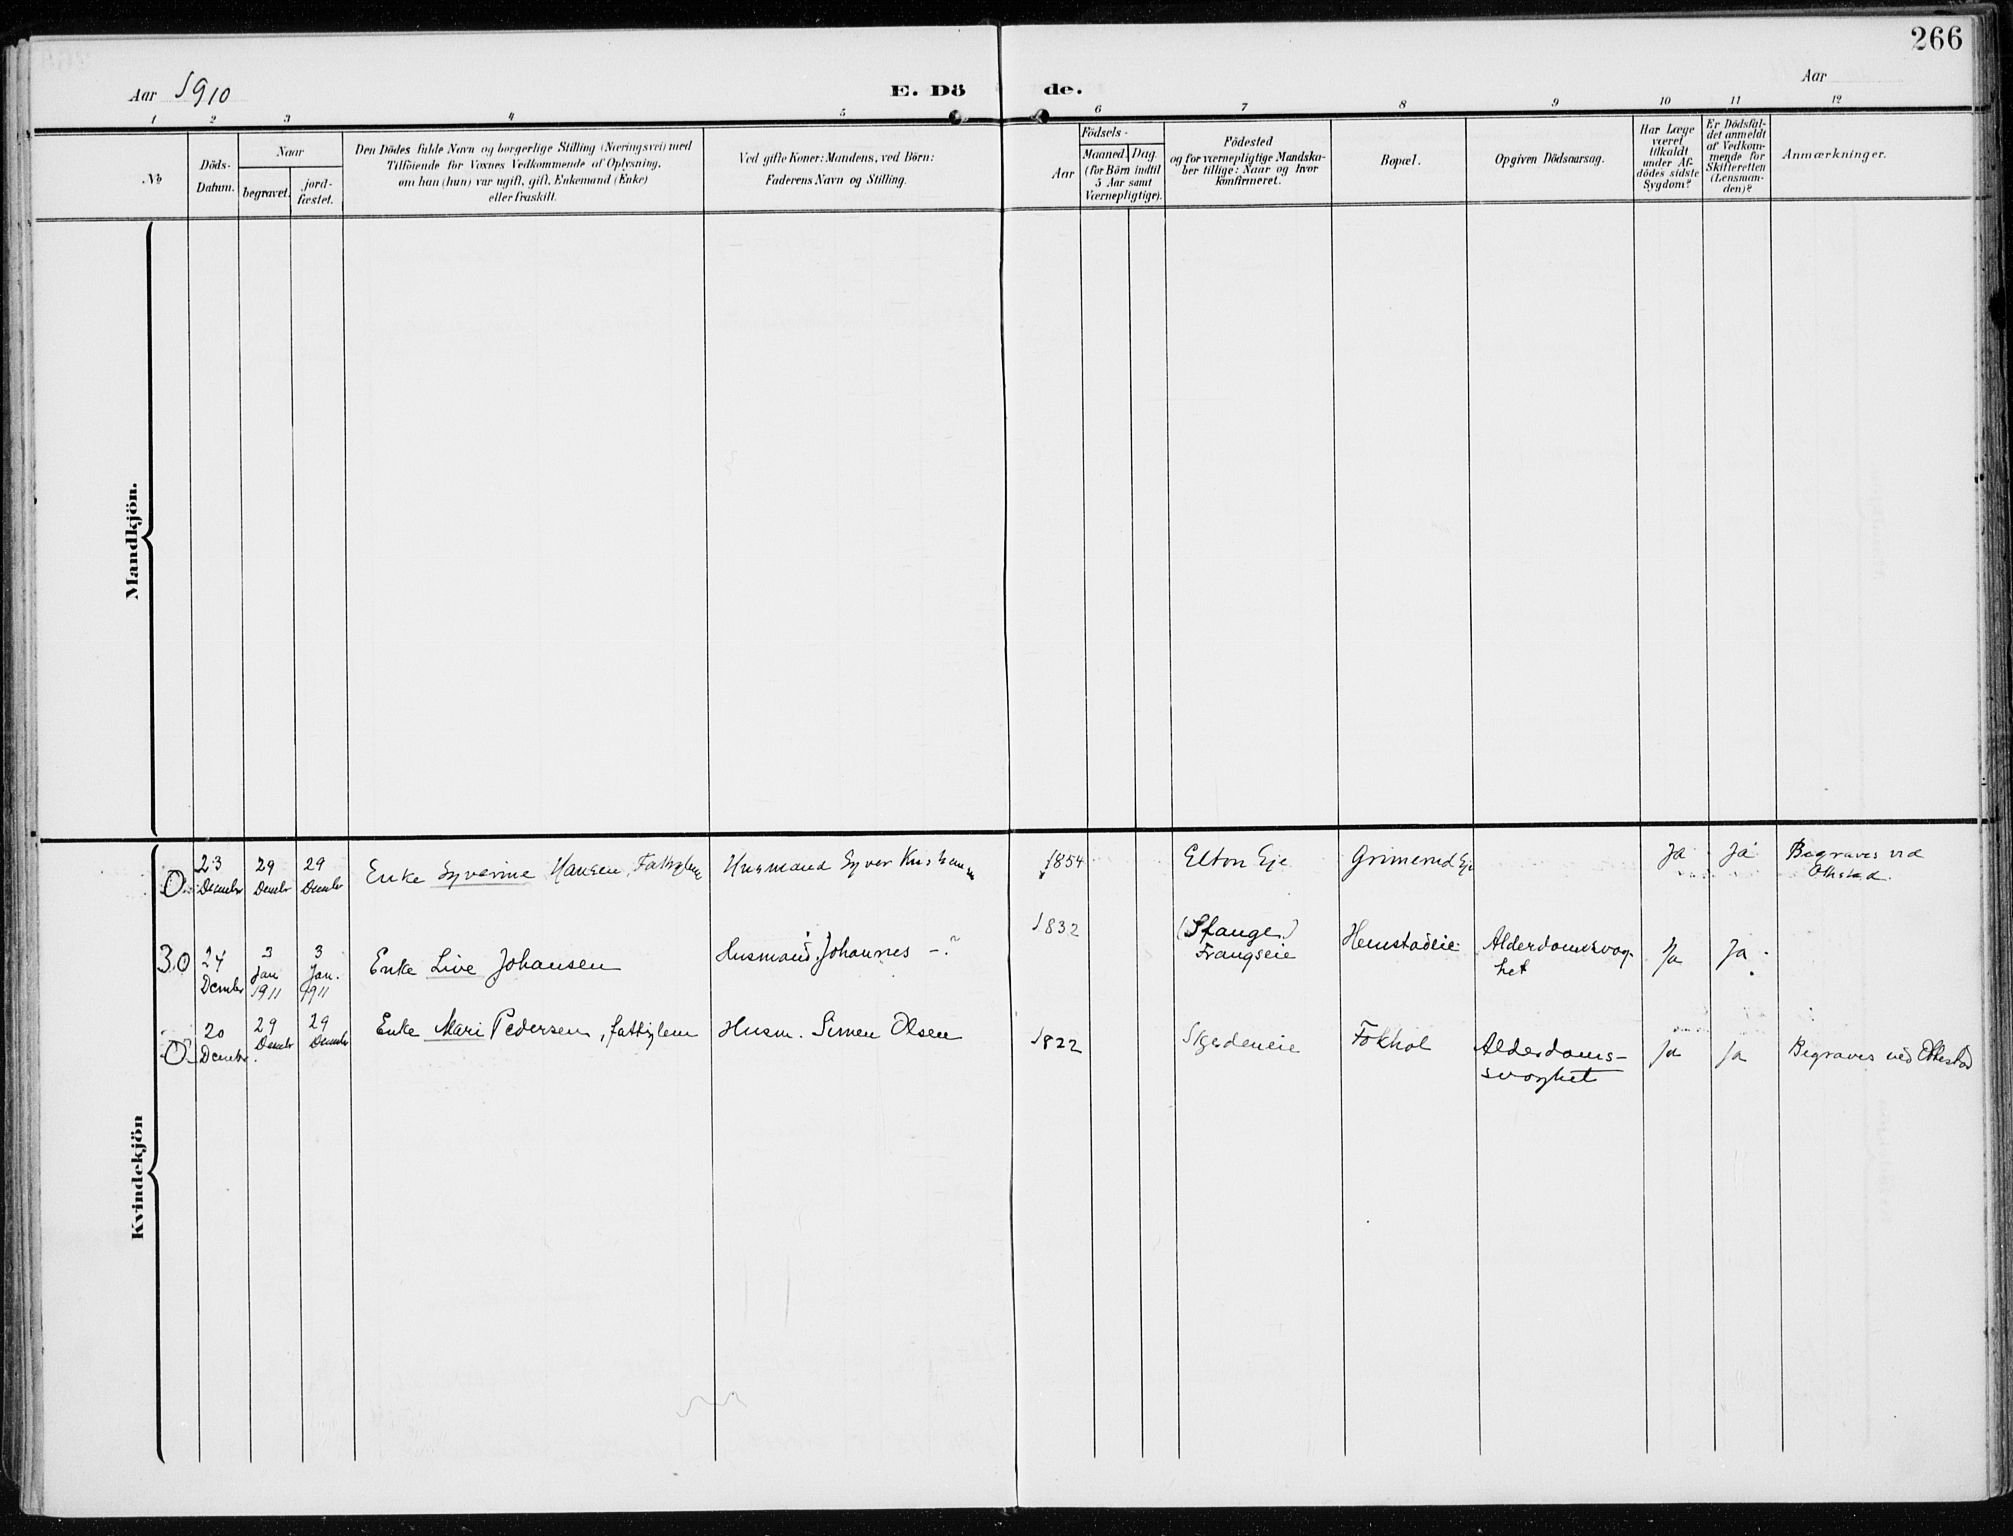 266
Aar 1910
E. Dö de.
Aar
1 2 3 4 5 6 7 8 9 10 11 12
No
Döds-
Datum.
Naar
begravet.
jord-
fæstet.
Den Dödes fulde Navn og borgerlige Stilling (Næringsvei) med
Tilföiende for Voxnes Vedkommende af Oplysning,
om han (hun) var ugift, gift, Enkemand (Enke)
eller fraskilt.
Ved gifte Koner: Mandens, ved Börn:
Faderens Navn og Stilling.
Födsels-
Aar
Maaned. Dag.
(for Börn indtil
5 Aar samt
Værnepligtige).
Födested
og for værnepligtige Mandska-
ber tillige: Naar og hvor
konfirmeret.
Bopæl.
Opgiven Dödsaarsag.
Har Læge
været
tilkaldt
under Af-
dödes sidste
Sygdom?
Er Dödsfal-
det anmeldt
af Vedkom-
mende for
Skifteretten
(Lensman-
den)?
Anmærkninger.
Mandkjön.
Kvindekjön
0. 23 Decmbr 29 Decmbr 29 Decmbr Enke Syverine Hansen, Fattiglem Husmand Syver 1854 Elton Eje Grimerud Eje Ja Ja Begraves ved
Ottestad.
30 24 Decmbr 3 Jan 1911 3 Jan. 1911 Enke Live Johansen Husmand Johannes —? 1832 (Stange)
Frangseie Hemstadeie Alderdomssvag-
het Ja Ja.
0. 20 Decmbr. 29 Decmbr 29 Decmbr Enke Mari Pedersen, fattiglem Husm. Simen Olsen 1822 Skjerdeneie Fokhol Alderdoms-
svaghet Ja Ja Begraves ved Ottestad